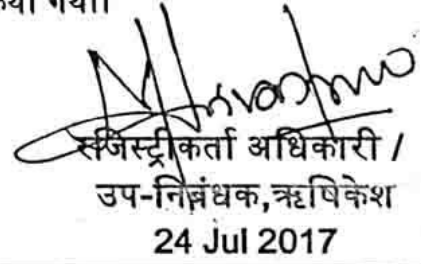 किया गया।
रजिस्ट्रीकर्ता अधिकारी /
उप-निबंधक,ऋषिकेश
24 Jul 2017